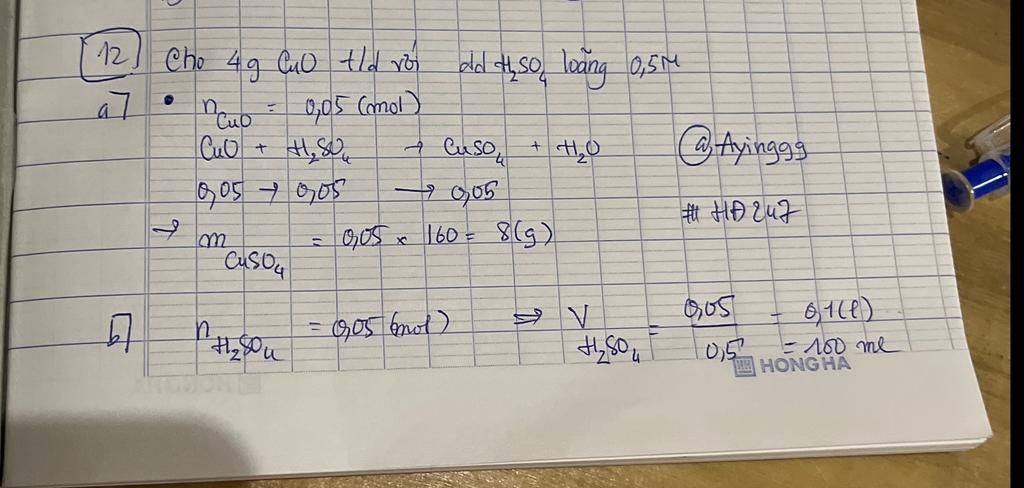 12 Cho 4g CuO t/d với dd H₂SO₄ loãng 0,5M
a] • n CuO = 0,05 (mol)
CuO + H₂SO₄ → CuSO₄ + H₂O
@Ayinggg
0,05 → 0,05 → 0,05
# HĐ247
→ m CuSO₄ = 0,05 × 160 = 8(g)
b] n H₂SO₄ = 0,05 (mol) ⇒ V H₂SO₄ = 0,05 / 0,5 = 0,1(l)
= 100 ml
HONG HA